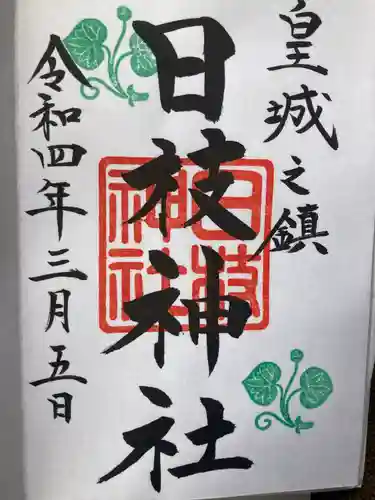 皇城之鎮
日枝神社
日枝
神社
令和四年三月五日